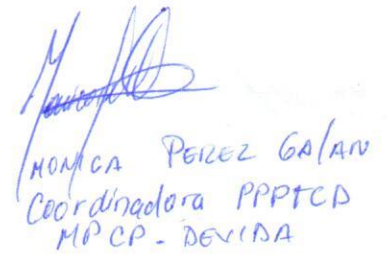 MONICA PEREZ GALAN
Coordinadora PPPTCD
MPCP - DEVIDA